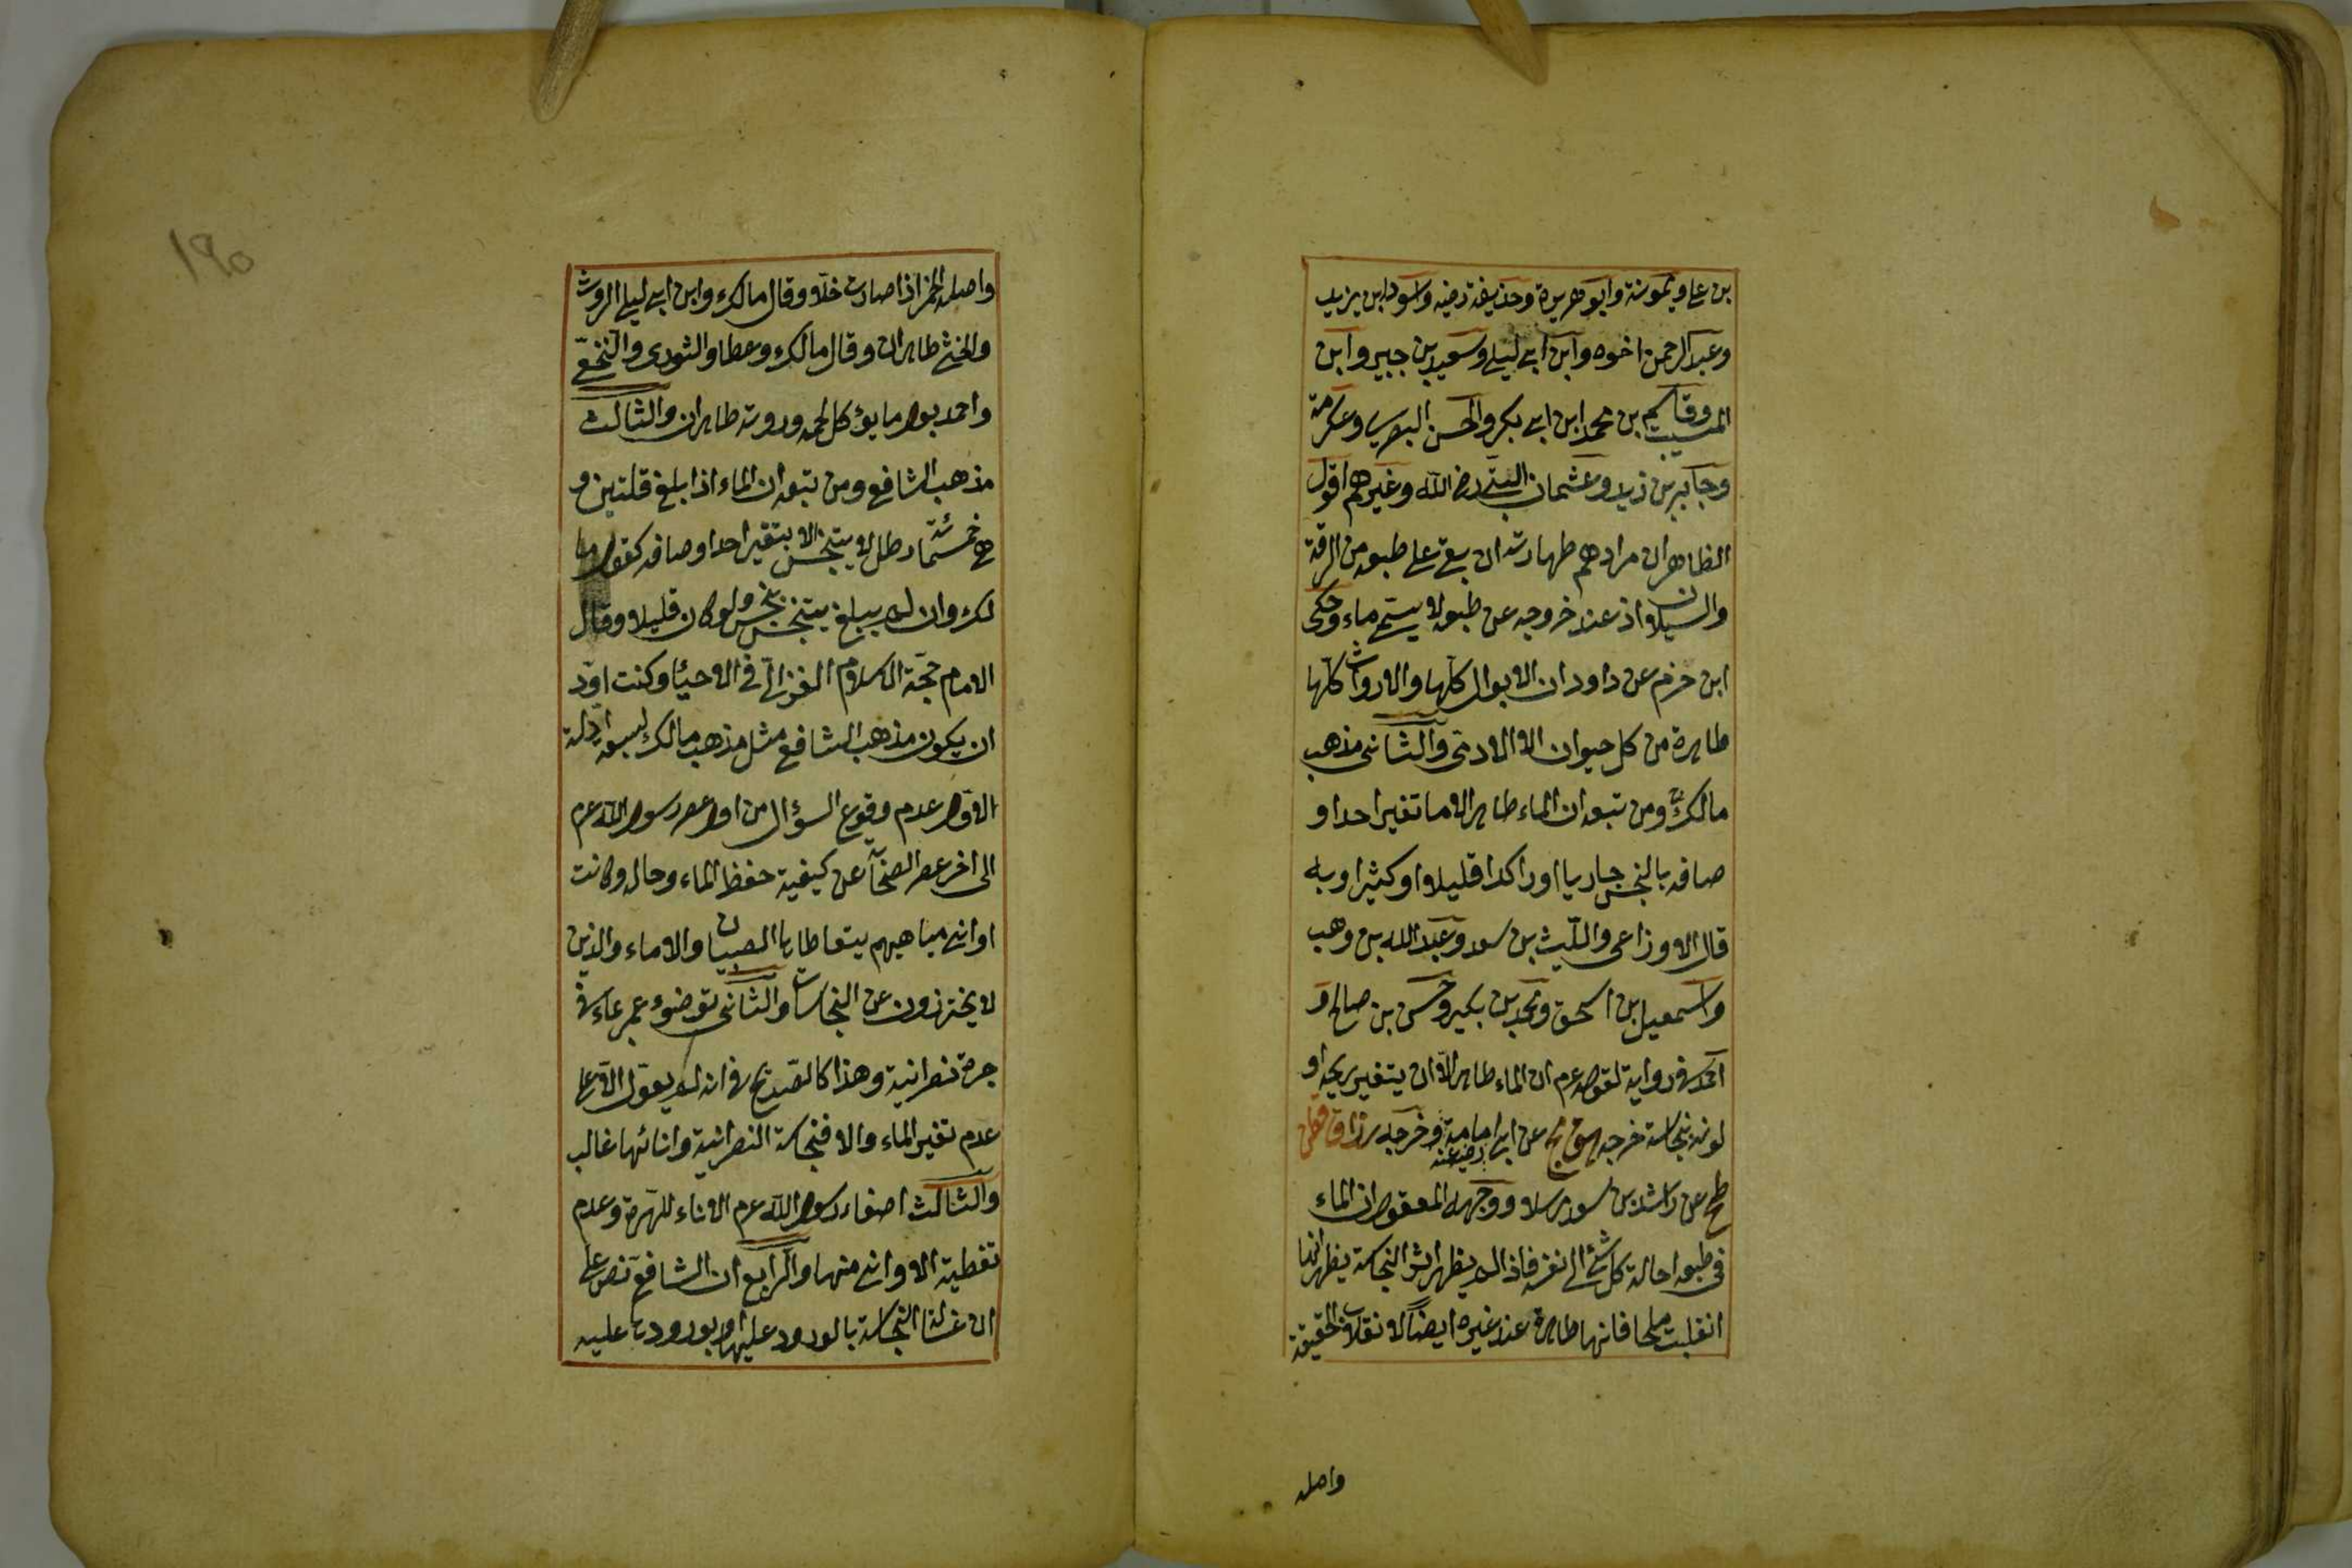 بن علي وميمونة وابو هريرة وحذيفة رضه واسود ابن يزيد
وعبد الرحمن اخوه وابن ابي ليلى وسعيد بن جبير وابن
المسيب وقاسم بن محمد ابن ابي بكر والحسن البصري وعكرمة
وجابر بن زيد وعثمان البتي رض الله وغيرهم اقول
الظاهر ان مرادهم طهارته ان بقي على طبعه من الرقة
والسيلان اذ عند خروجه عن طبعه لا يسمى ماء وحكى
ابن حزم عن داود ان الابوال كلها والارواث كلها
طاهرة من كل حيوان الا الادمى والثانى مذهب
مالك ومن تبعه ان الماء طاهر الا ما تغير احد او
صافه بالنجس جاريا او راكدا قليلا او كثيرا وبه
قال الاوزاعى والليث بن سعد وعبد الله بن وهب
واسمعيل بن اسحق ومحمد بن بكير وحسن بن صالح و
احمد فى رواية لقوله عم ان الماء طاهر الا ان يتغير ريحه او
لونه بنجاسة خرجه هق مج عن ابي امامة رضى عنه وخرجه رزاق قطن
طح عن راشد بن سعد مرسلا ووجهه المعقول ان الماء
فى طبعه احالة كل شئ الى نفسه فاذا لم يظهر اثر النجاسة يظهر انها
انقلبت ملحا فانها طاهرة عند غيره ايضا لانقلاب الحقيقة
واصله
١٩٥
واصله الخمر اذا صارت خلا وقال مالك وابن ابي ليلى الروث
والخثى طاهران وقال مالك وعطا والثورى والنخعى
واحمد بول ما يؤكل لحمه وروثه طاهران والثالث
مذهب الشافعى ومن تبعه ان الماء اذا بلغ قلتين و
هى خمسمائة رطل لا يتنجس الا بتغير احد اوصافه كقول ما
لك وان لم يبلغ يتنجس بنجس ولو كان قليلا وقال
الامام حجة الاسلام الغزالى فى الاحيا وكنت اود
ان يكون مذهب الشافعى مثل مذهب مالك لسبعة ادلة
الاول عدم وقوع السؤال من اول عصر رسول الله عم
الى اخر عصر الصحابة عن كيفية حفظ الماء وحاله وكانت
اوانى مياههم يتعاطاها الصبيان والاماء والذين
لا يحترزون عن النجاسات والثانى توضوء عمر بماء فى
جرة نصرانية وهذا كالصريح فى انه لم يعول الا على
عدم تغير الماء والا فنجاسة النصرانية وانائها غالب
والثالث اصغاء رسول الله عم الاناء للهرة وعدم
تغطية الاوانى منها والرابع ان الشافعى نص على
ان غسالة النجاسة بالورود عليها او بورودها عليه